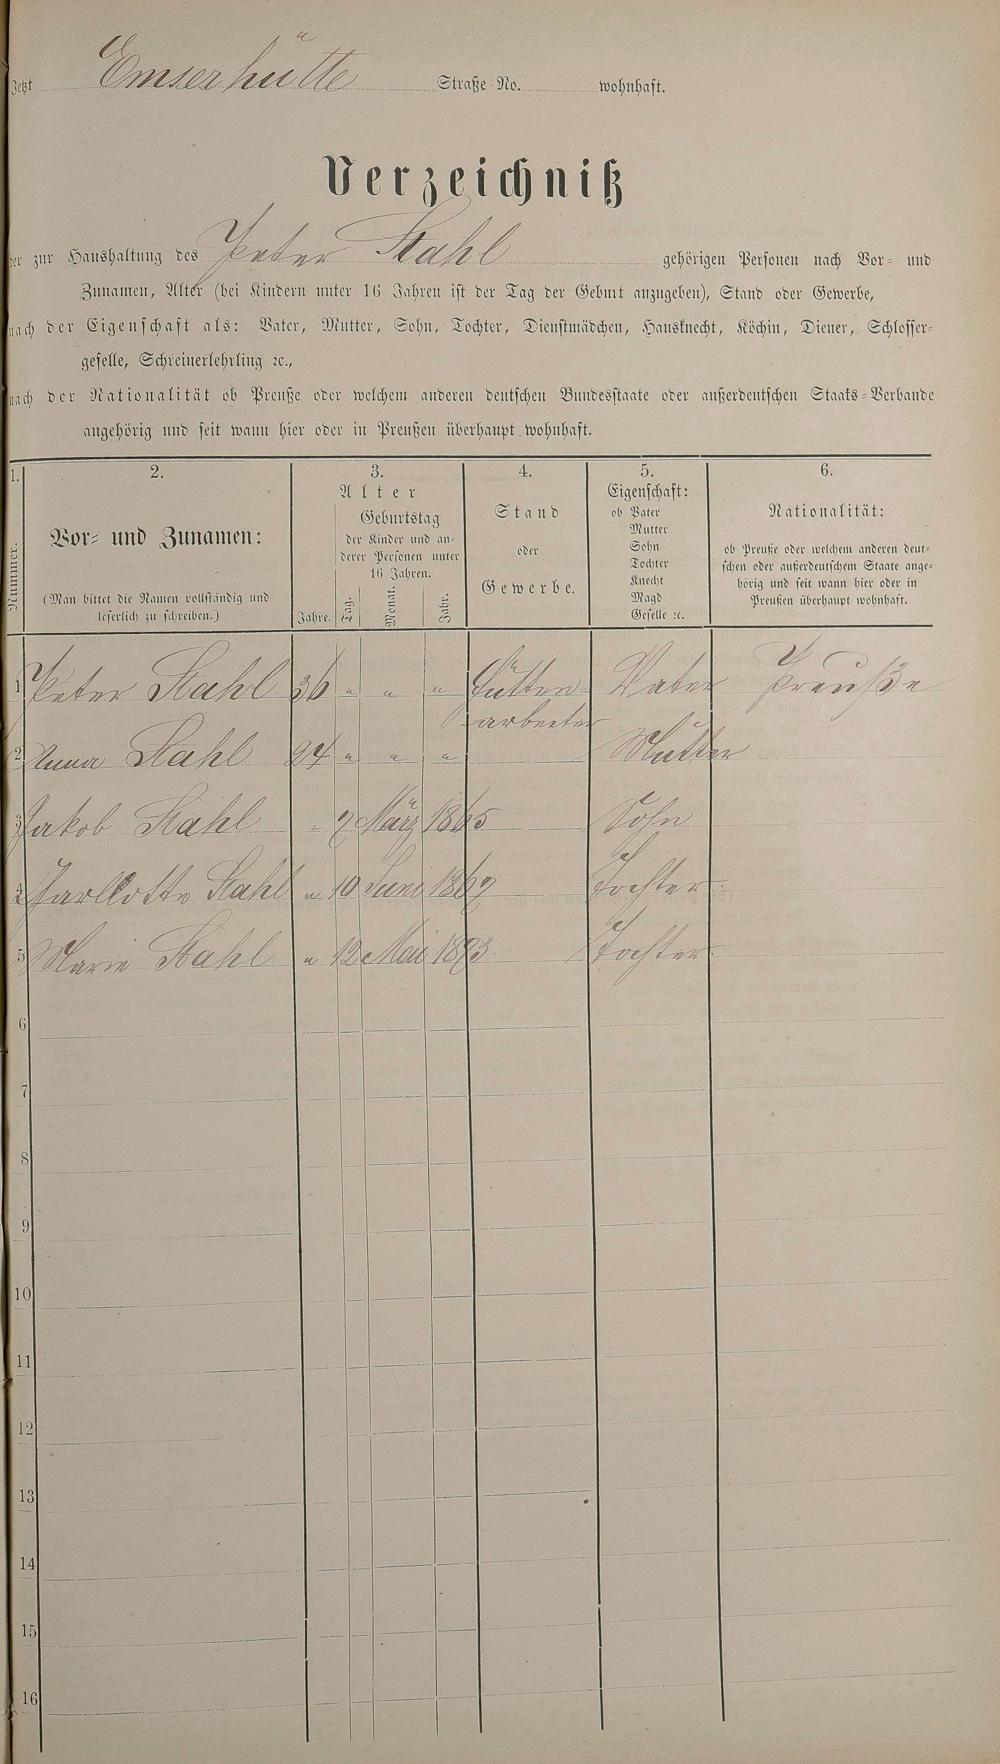 Jetzt Emserhütte Straße No. wohnhaft.
Verzeichniß
der zur Haushaltung des Peter Stahl gehörigen Personen nach Vor- und
Zunamen, Alter (bei Kindern unter 16 Jahren ist der Tag der Geburt anzugeben), Stand oder Gewerbe,
nach der Eigenschaft als: Vater, Mutter, Sohn, Tochter, Dienstmädchen, Hausknecht, Köchin, Diener, Schlosser-
geselle, Schreinerlehrling ꝛc.,
nach der Nationalität ob Preuße oder welchem anderen deutschen Bundesstaate oder außerdeutschen Staats-Verbande
angehörig und seit wann hier oder in Preußen überhaupt wohnhaft.
1. 2. 3. 4. 5. 6.
Nummer.
Vor- und Zunamen:
(Man bittet die Namen vollständig und
leserlich zu schreiben.)
Alter
Geburtstag
der Kinder und an-
derer Personen unter
16 Jahren.
Jahre. Tag. Monat. Jahr.
Stand
oder
Gewerbe.
Eigenschaft:
ob Vater
Mutter
Sohn
Tochter
Knecht
Magd
Geselle ꝛc.
Nationalität:
ob Preuße oder welchem anderen deut-
schen oder außerdeutschem Staate ange-
hörig und seit wann hier oder in
Preußen überhaupt wohnhaft.
1 Peter Stahl 36 " " " Hütten- Vater Preuße
arbeiter
2 Anna Stahl 24 " " " Mutter
3 Jakob Stahl " 7 März 1865 Sohn
4 Jarllotte Stahl " 10 Juni 1867 Tochter.
5 Marie Stahl " 12 Mai 1873. Tochter.
6
7
8
9
10
11
12
13
14
15
16